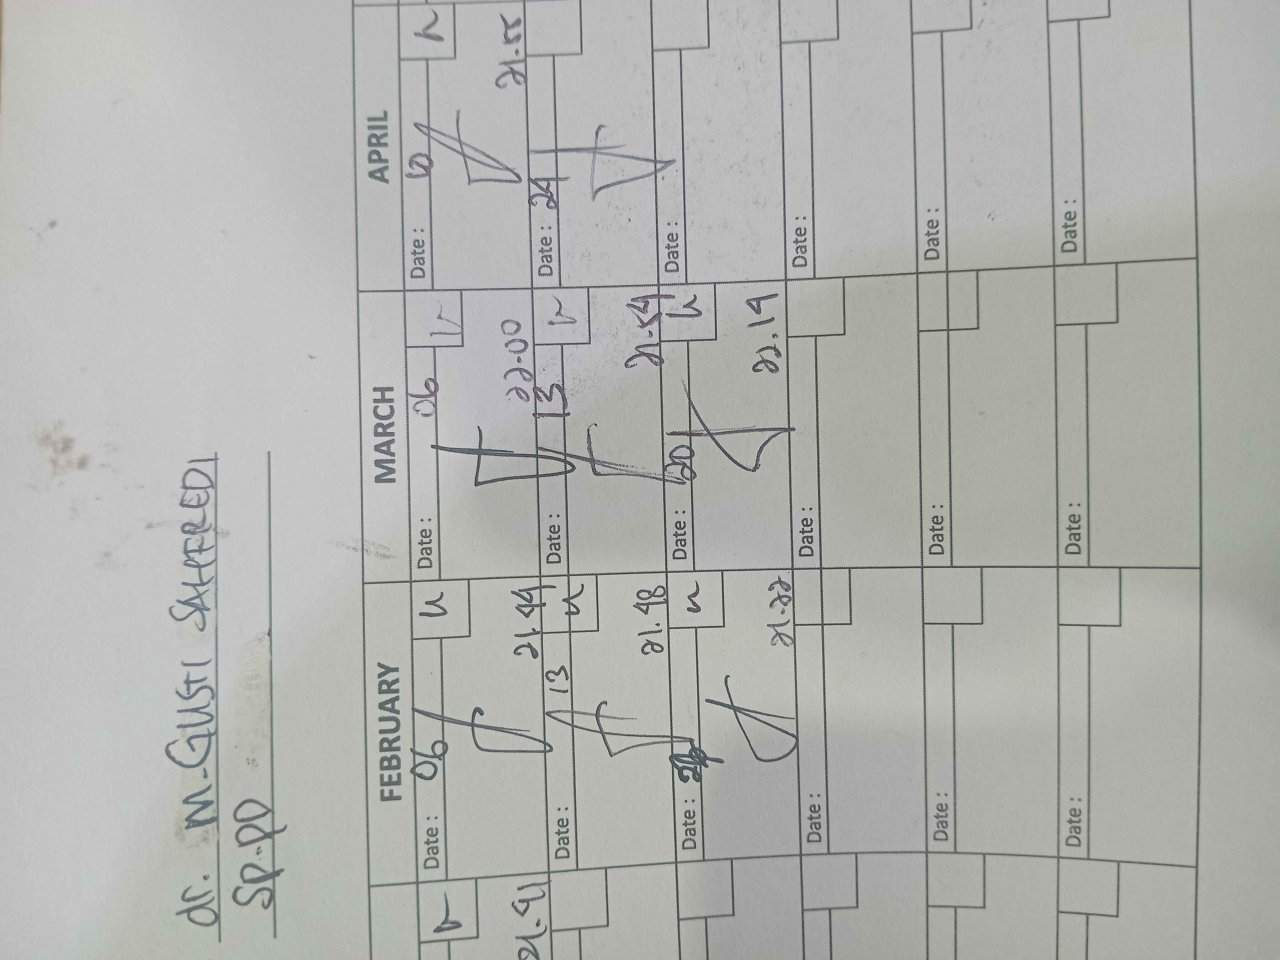 dr. M. GUSTI SAHFREDI
SP.PD
FEBRUARY MARCH APRIL
Date: 06 Date: 06 Date: 10
21.41 21.44 22.00 21.55
Date: 13 Date: 13 Date: 24
21.48 21.54
Date: Date: 20 Date:
21.22 22.19
Date: Date: Date:
Date: Date: Date:
Date: Date: Date: